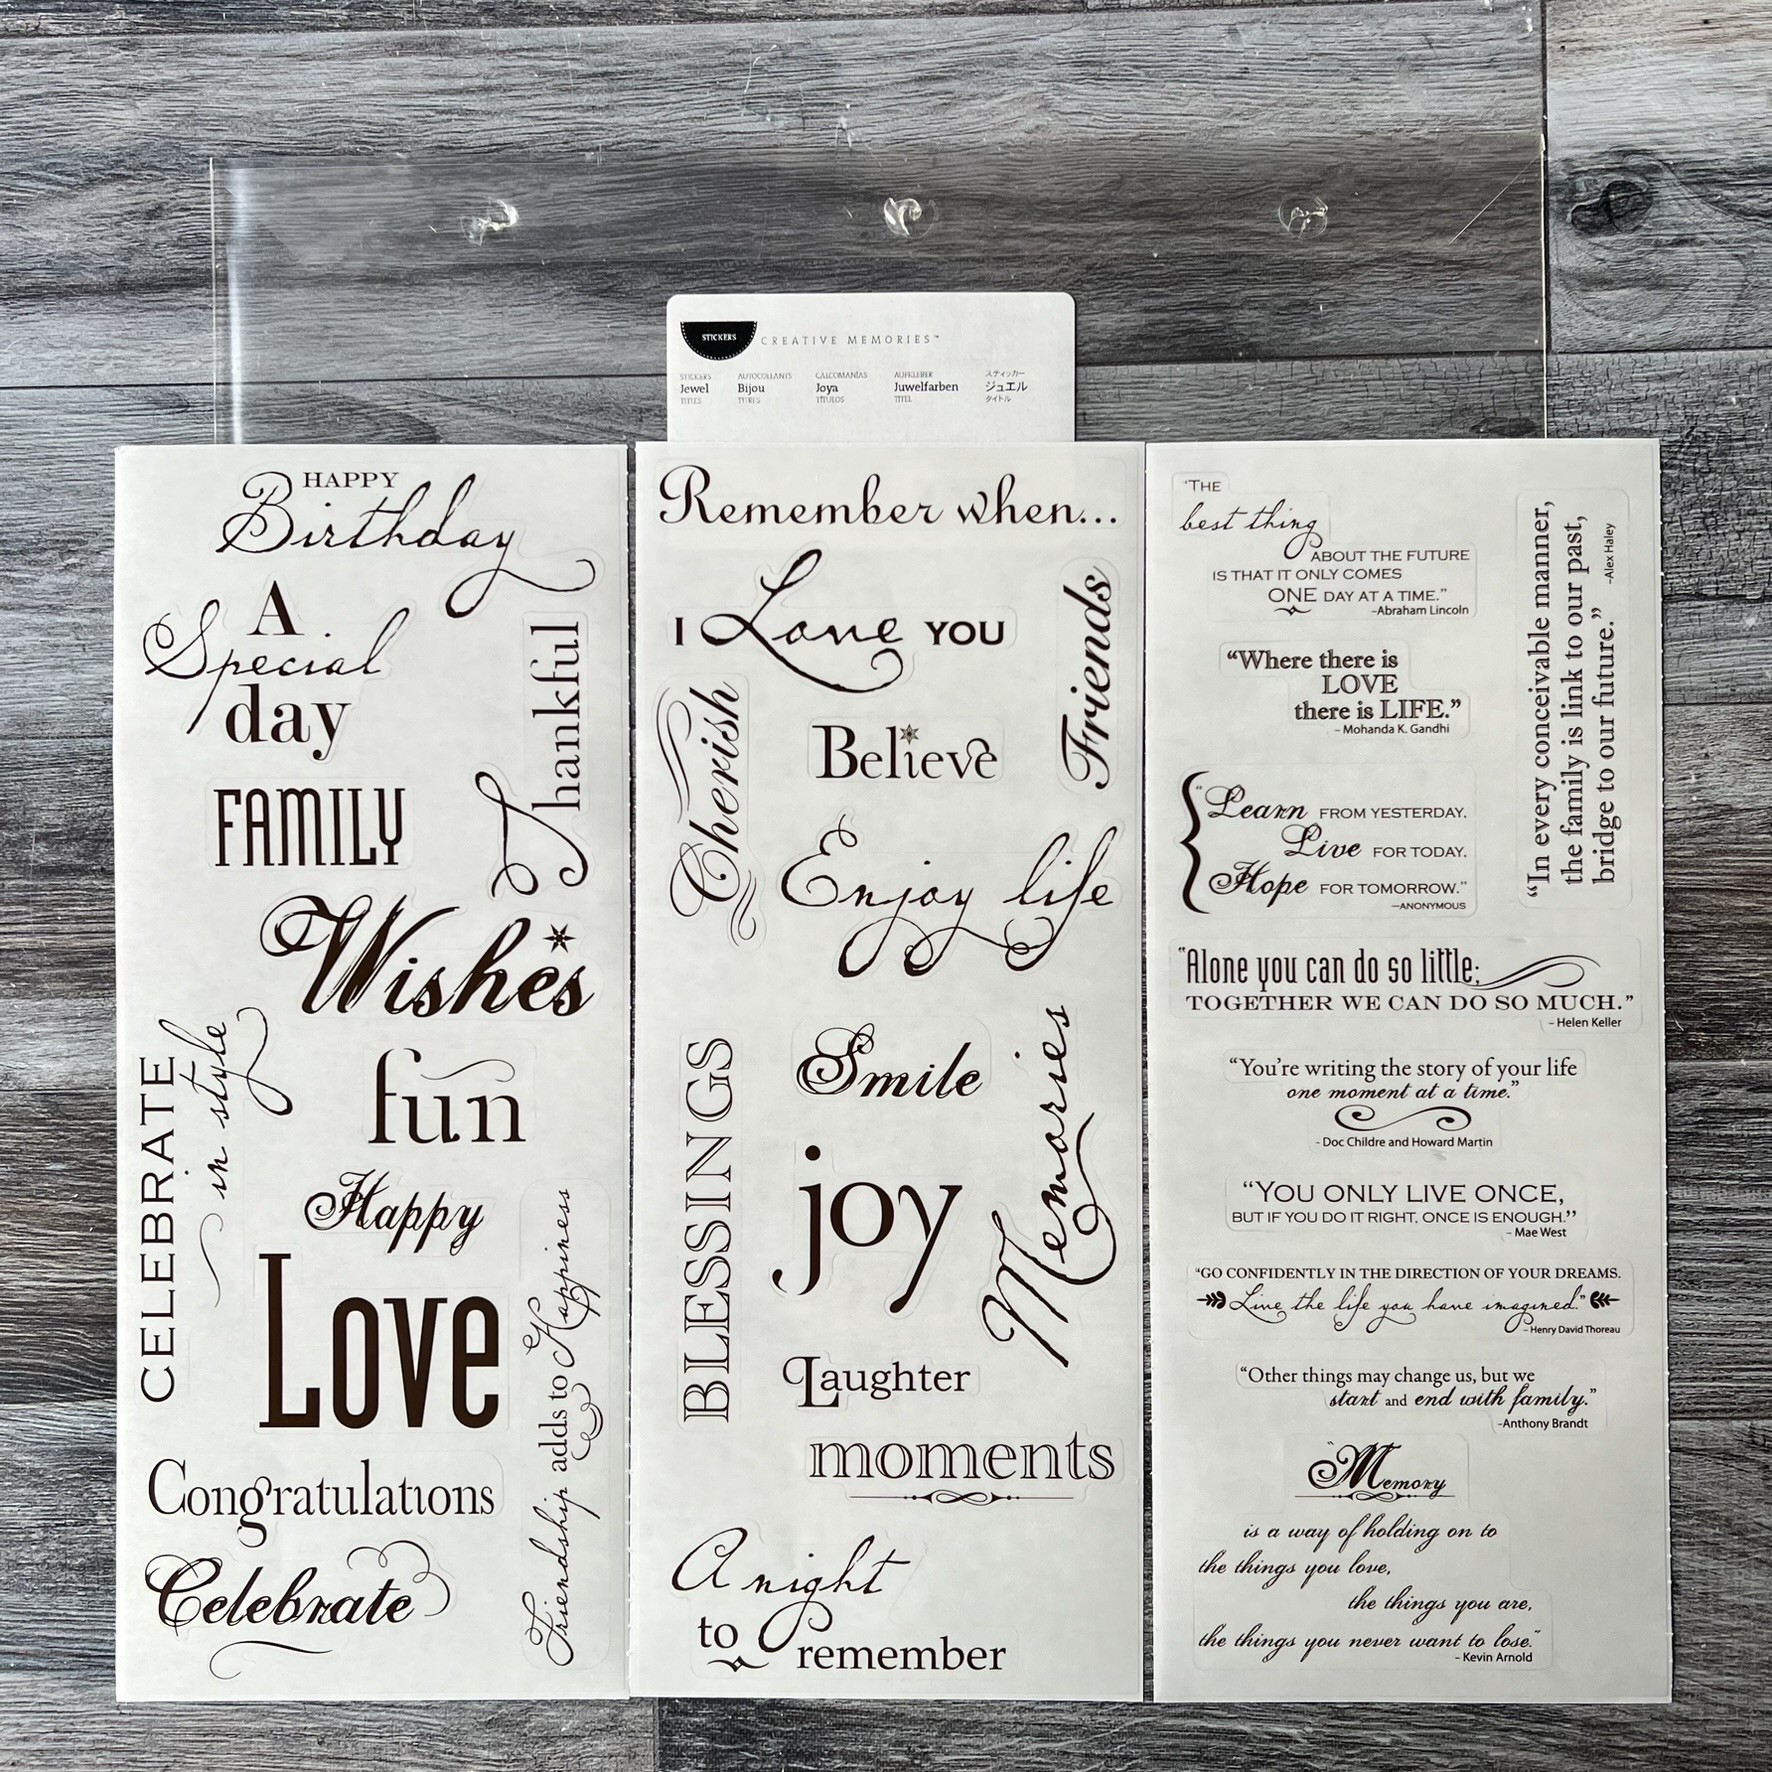 STICKERS
CREATIVE MEMORIES™
STICKERS
Jewel
TITLES
AUTOCOLLANTS
Bijou
TITRES
CALCOMANÍAS
Joya
TÍTULOS
AUFKLEBER
Juwelfarben
TITEL
ステッカー
ジュエル
タイトル
HAPPY
Birthday
A
Special
day
Thankful
FAMILY
Wishes
CELEBRATE
in style
fun
Happy
Love
Friendship adds to Happiness
Congratulations
Celebrate
Remember when...
I Love YOU
Friends
Cherish
Believe
Enjoy life
BLESSINGS
Smile
Memories
joy
Laughter
moments
A night
to remember
"THE
best thing
ABOUT THE FUTURE
IS THAT IT ONLY COMES
ONE DAY AT A TIME."
–Abraham Lincoln
"In every conceivable manner,
the family is link to our past,
bridge to our future."
–Alex Haley
"Where there is
LOVE
there is LIFE."
– Mohanda K. Gandhi
"Learn FROM YESTERDAY,
Live FOR TODAY,
Hope FOR TOMORROW."
—ANONYMOUS
"Alone you can do so little;
TOGETHER WE CAN DO SO MUCH."
– Helen Keller
"You're writing the story of your life
one moment at a time."
- Doc Childre and Howard Martin
"YOU ONLY LIVE ONCE,
BUT IF YOU DO IT RIGHT, ONCE IS ENOUGH."
- Mae West
"GO CONFIDENTLY IN THE DIRECTION OF YOUR DREAMS.
Live the life you have imagined."
– Henry David Thoreau
"Other things may change us, but we
start and end with family."
-Anthony Brandt
"Memory
is a way of holding on to
the things you love,
the things you are,
the things you never want to lose."
– Kevin Arnold